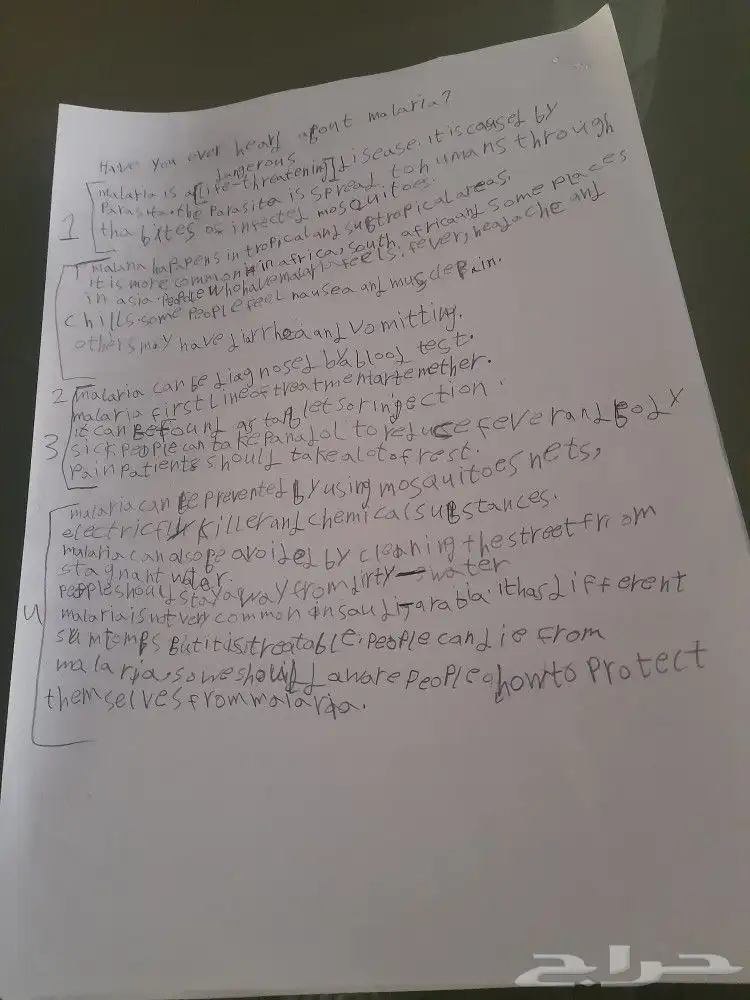 Have you ever heard about malaria?
dangerous
1
malaria is a [life-threatening] disease. it is caused by
Parasite. the Parasita is spread to humans through
tha bites of infected mosquitoes.
malaria happens in tropical and subtropical areas.
it is more common in africa, south africa and some places
in asia. People who have malaria feels. fever, headache and
chills. some People feel nausea and muscle pain.
others may have diarrhea and vomitting.
2
malaria can be diagnosed by a blood test.
malaria first Line of treatment artemether.
3
it can be found as tablets or injection.
sick people can take panadol to reduce fever and body
pain patients should take a lot of rest.
malaria can be prevented by using mosquitoes nets,
electric fly killer and chemical substances.
malaria can also be avoided by cleaning the street from
stagnant water.
people should stay away from dirty water
4
malaria is not very common in saudi-arabia. it has different
but it is treatable. people can die from
malaria, so we should aware people how to protect
themselves from malaria.
حراج